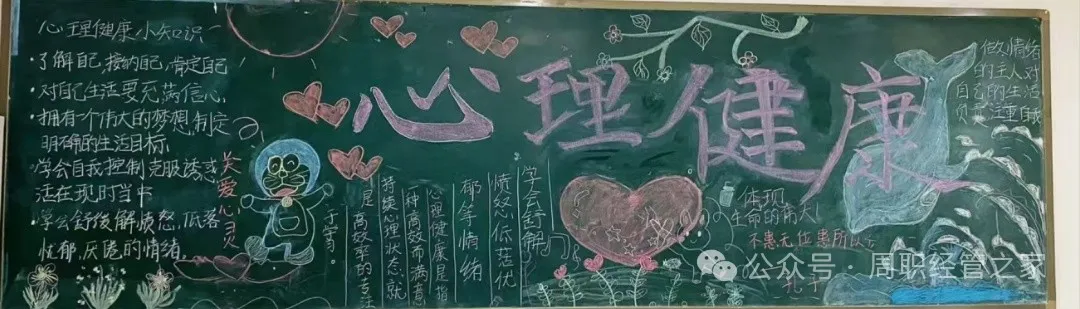 心理健康小知识
·了解自己,接纳自己,肯定自己
·对自己生活要充满信心,
·拥有一个伟大的梦想,制定
明确的生活目标
·学会自我控制克服诱惑
活在现时当中
·学会舒缓解愤怒,低落
忧郁,厌倦的情绪。
关爱心灵
心理健康
学会舒解
愤怒低落忧
郁等情绪
心理健康是指
一种高效而满意
持续心理状态,就
是高效率的专注
于学习。
做情绪
的主人对
自己的生活
负责注重自我
体现
生命的伟大!
不患无位患所以
孔子
公众号·周职经管之家